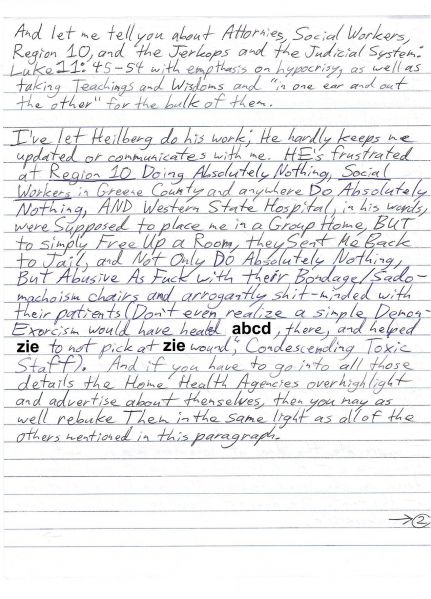 And let me tell you about Attornies, Social Workers,
Region 10, and the Jerkops and the Judicial System:
Luke 11:45-54 with empthasis on hypocrisy, as well as
taking Teachings and Wisdoms and "in one ear and out
the other" for the bulk of them.
I've let Heilberg do his work; He hardly keeps me
updated or communicates with me. HE's frustrated
at Region 10 Doing Absolutely Nothing, Social
Workers in Greene County and anywhere Do Absolutely
Nothing, AND Western State Hospital, in his words,
were Supposed to place me in a Group Home, BUT
to simply Free Up a Room, they Sent Me Back
to Jail, and Not Only DO Absolutely Nothing,
But Abusive As Fuck with their Bondage/Sado-
machoism chairs and arrogantly shit-minded with
their patients (Don't even realize a simple Demon-
Exorcism would have healed abcd, there, and helped
zie to not pick at zie wound; Condescending Toxic
Staff). And if you have to go into all those
details the Home Health Agencies overhighlight
and advertise about themselves, then you may as
well rebuke Them in the same light as all of the
others mentioned in this paragraph.
→②